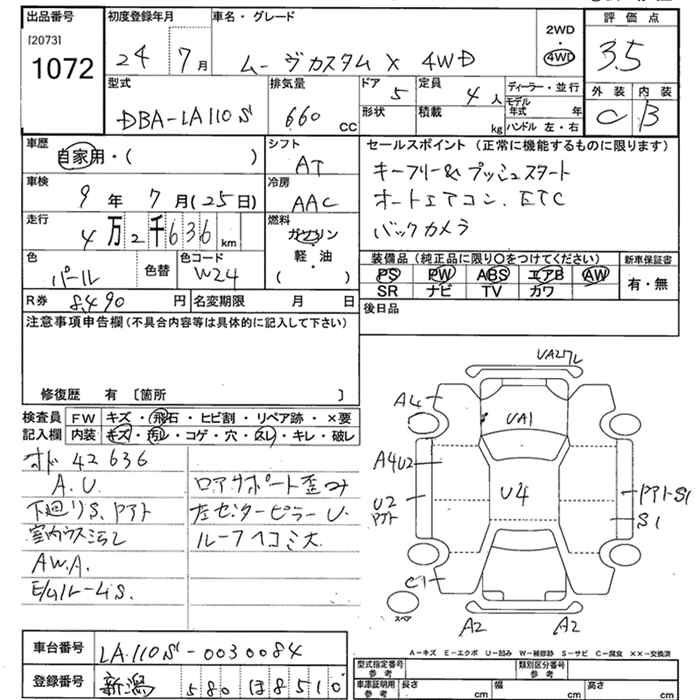 出品番号
[2073]
1072
初度登録年月
24 7月
車名・グレード
ムーヴカスタム X 4WD
2WD
4WD
評価点
3.5
外装 内装
C B
型式
DBA-LA110S
排気量
660 CC
ドア 5
形状
定員 4人
積載 kg
ディーラー・並行
モデル年式 年
ハンドル 左・右
車歴
自家用・( )
シフト
AT
車検
9年 7月(25日)
冷房
AAC
走行
4万2千636km
燃料
ガソリン・軽油
( )
色
パール
色替
色コード
W24
R券 8,490円
名変期限 月 日
セールスポイント (正常に機能するものに限ります)
キーフリー&プッシュスタート
オートエアコン. ETC
バックカメラ
装備品(純正品に限り〇をつけてください)
PS PW ABS エアB AW
SR ナビ TV カワ
新車保証書
有・無
後日品
注意事項申告欄(不具合内容等は具体的に記入して下さい)
修復歴 有 〔箇所 〕
検査員記入欄
FW キズ・飛石・ヒビ割・リペア跡・×要
内装 キズ・汚レ・コゲ・穴・スレ・キレ・破レ
オド 42636
A.U.
下廻りS.Pアト
A.W.A.
ロアサポート歪み
左センターピラーU.
ルーフヘコミ大
UA27L
A4
UA1
A4U2
U2
Pアト
U4
PアトS1
S1
C1
スペア
A2
A2
A-キズ E-エクボ U-凹み W-補修跡 S-サビ C-腐食 ××-交換済
車台番号
LA110S-0030084
登録番号
新潟 580 ほ 8510
型式指定番号
参考
類別区分番号
参考
車庫証明番号
参考
長さ cm
幅 cm
高さ cm